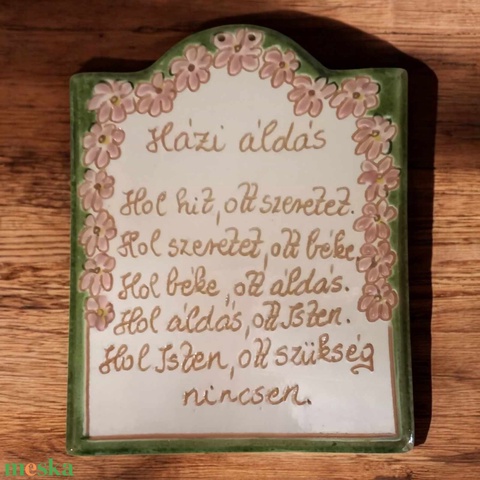 Házi áldás
Hol hit, ott szeretet.
Hol szeretet, ott béke.
Hol béke, ott áldás.
Hol áldás, ott Isten.
Hol Isten, ott szükség
nincsen.
meska